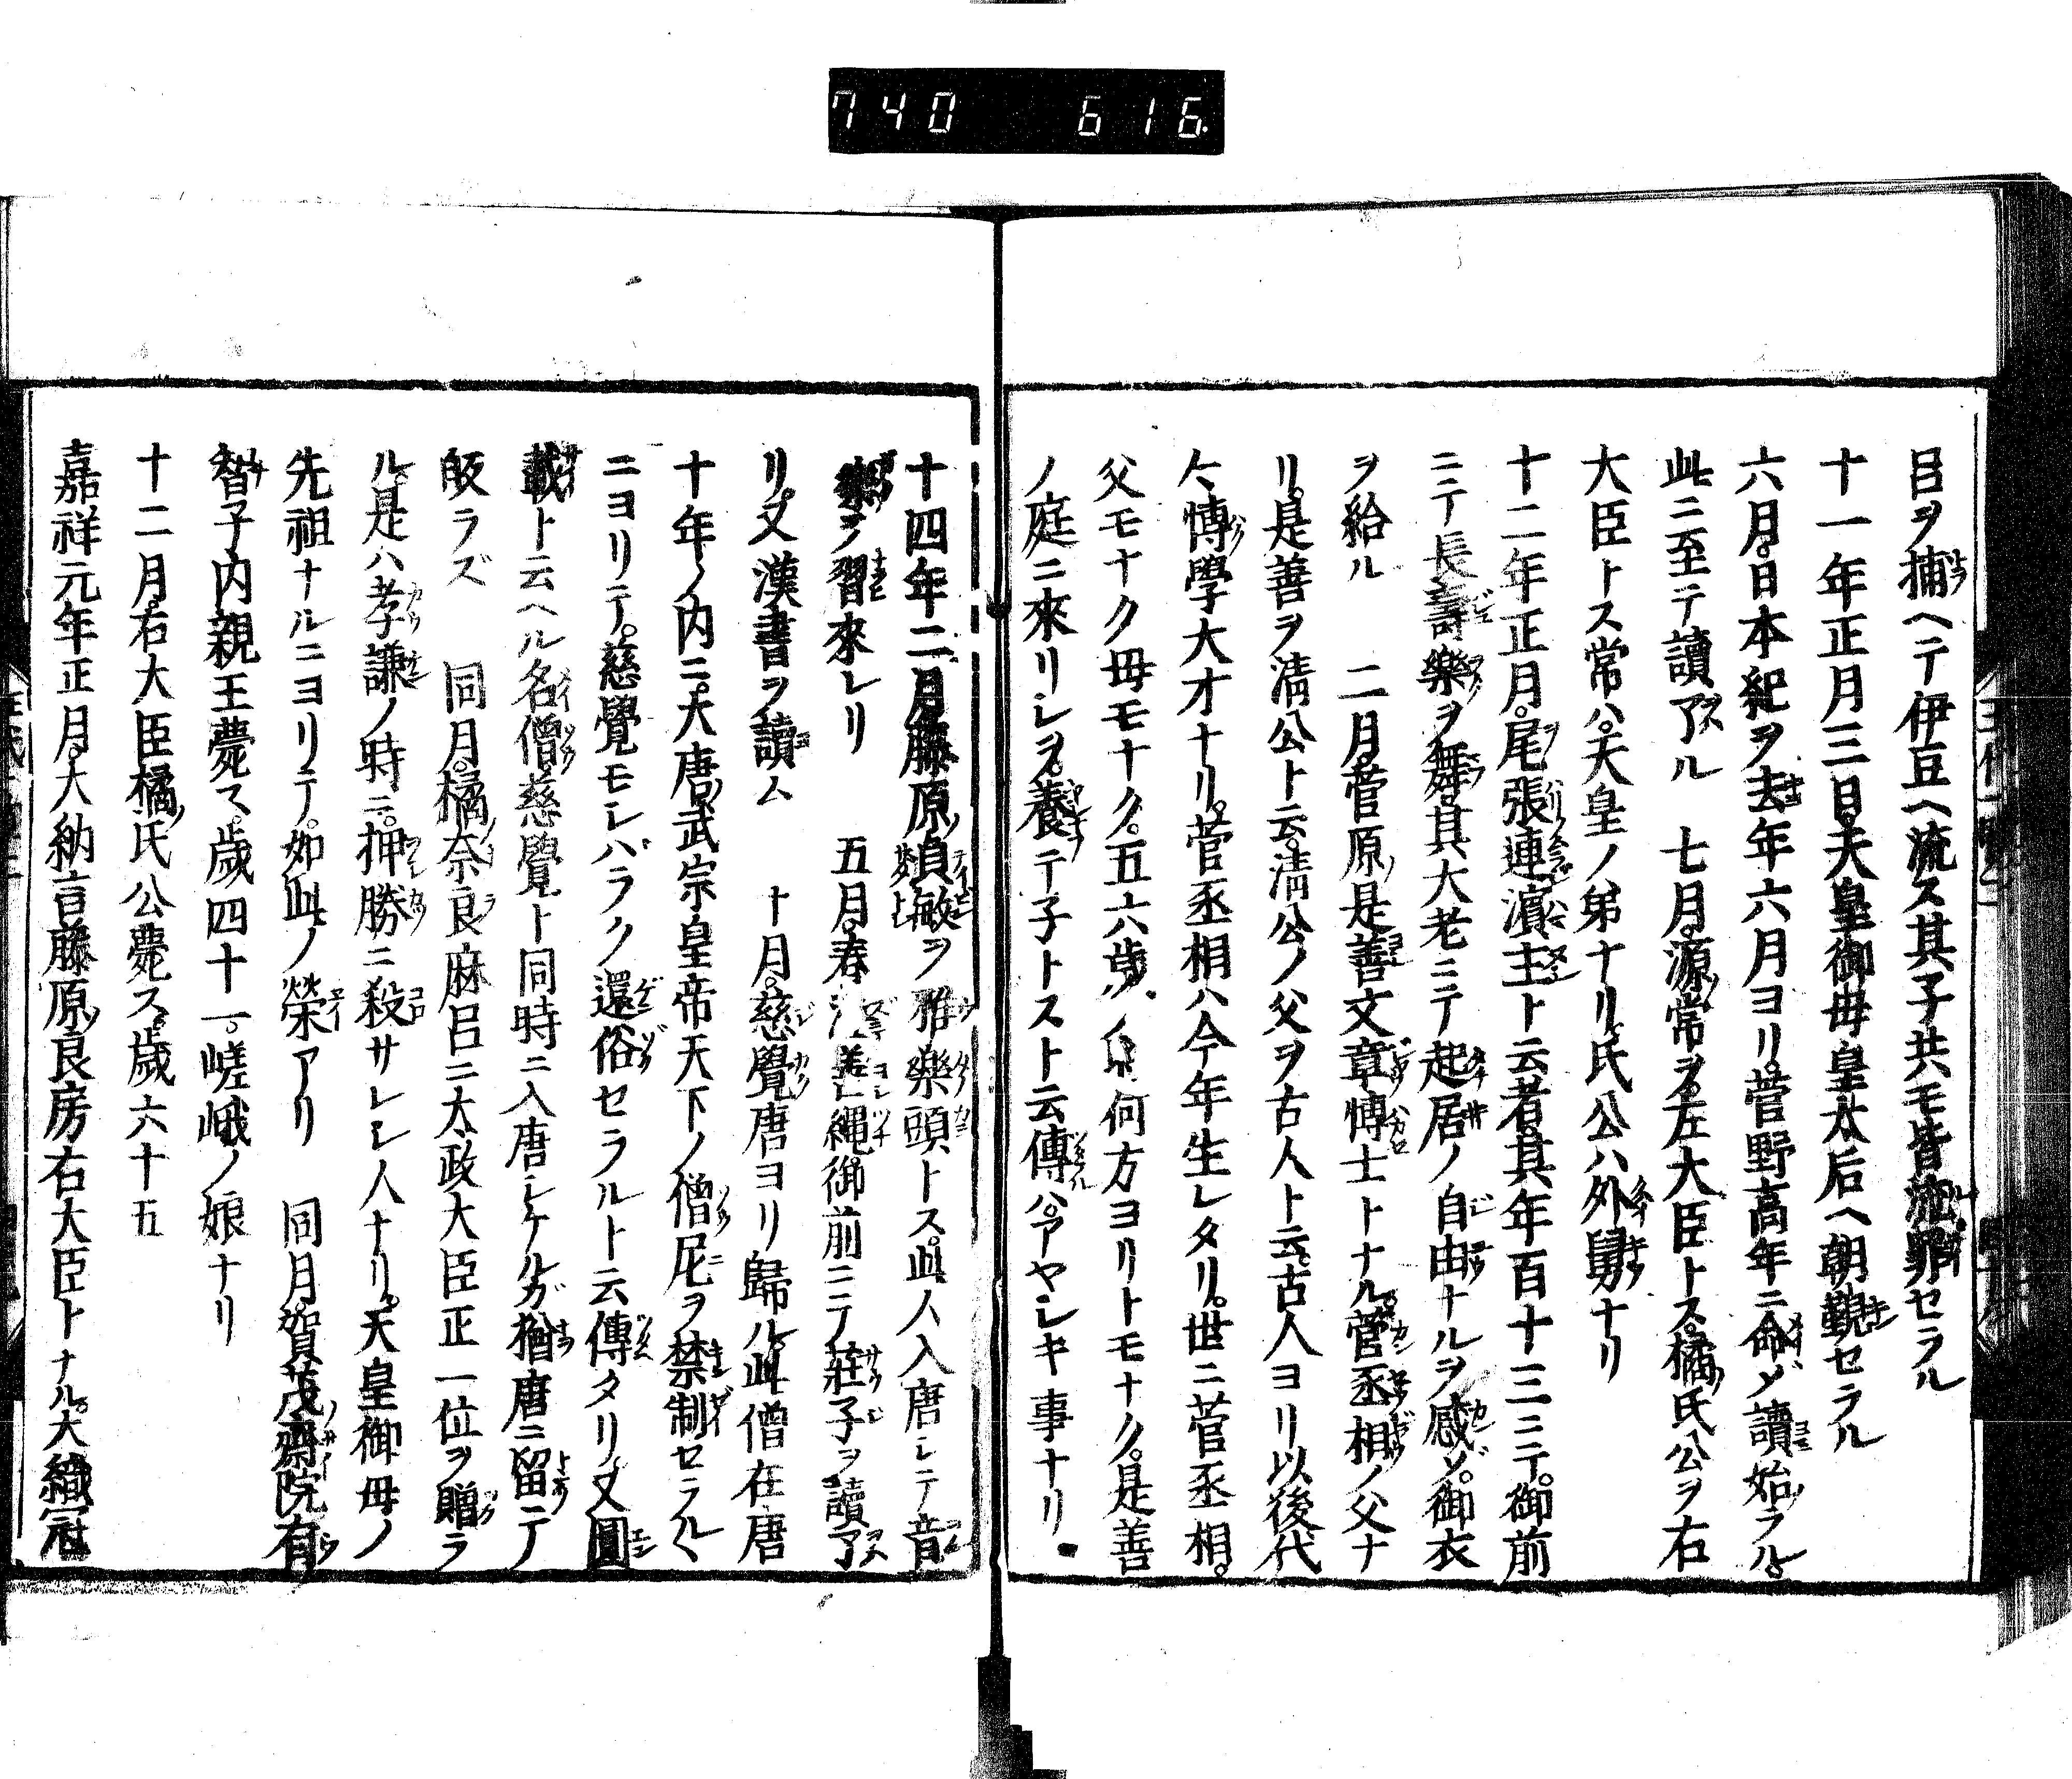 740 616
呂ヲ捕ヘテ伊豆ヘ流ス其子共モ皆流罪セラル
十一年正月三日。天皇御母皇太后ヘ朝覲セラル
六月。日本紀ヲ去年六月ヨリ。菅野高年ニ命ジ讀始ラル。
此ニ至テ讀了ル 七月。源常ヲ左大臣トス。橘氏公ヲ右
大臣トス常ハ。天皇ノ弟ナリ。氏公ハ外舅ナリ
十二年正月。尾張連濵主ト云者。其年百十三ニテ。御前
ニテ長壽樂ヲ舞。其大老ニテ起居ノ自由ナルヲ感ジ。御衣
ヲ給ル 二月。菅原是善文章博士トナル。菅丞相ノ父ナ
リ。是善ヲ清公ト云。清公ノ父ヲ古人ト云。古人ヨリ以後代
々博學大才ナリ。菅丞相ハ今年生レタリ。世ニ菅丞相。
父モナク母モナク。五六歳 何方ヨリトモナク。是善
ノ庭ニ來リシヲ。養テ子トスト云傳ハ。アヤシキ事ナリ
十四年二月。藤原貞敏ヲ雅樂頭トス。此人入唐シテ音
樂ヲ習來レリ 五月。春 善縄。御前ニテ莊子ヲ讀了
リ。又漢書ヲ讀ム 十月。慈覺唐ヨリ歸ル。此僧在唐
十年ノ内ニ。大唐武宗皇帝天下ノ僧尼ヲ禁制セラル
ニヨリテ。慈覺モシバラク還俗セラルト云傳タリ。又圓
載ト云ヘル名僧。慈覺ト同時ニ入唐シケルガ猶唐ニ留ニテ
皈ラズ 同月。橘奈良麻呂ニ太政大臣正一位ヲ贈ラ
ル。是ハ孝謙ノ時ニ。押勝ニ殺サレシ人ナリ。天皇御母ノ
先祖ナルニヨリテ。如此ノ榮アリ 同月。賀茂齋院有
智子内親王薨ス。歳四十一。嵯峨ノ娘ナリ
十二月。右大臣橘氏公薨ス。歳六十五
嘉祥元年正月。大納言藤原良房右大臣トナル。大織冠